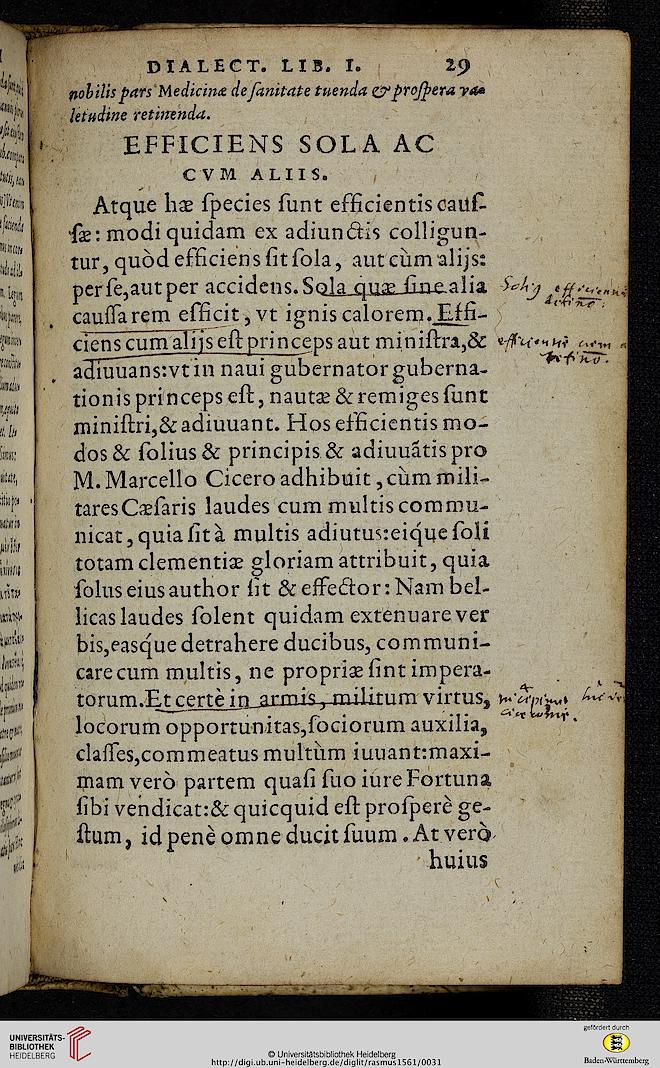 DIALECT. LIB. I. 29
nobilis pars Medicinæ de sanitate tuenda & prospera va-
letudine retinenda.
EFFICIENS SOLA AC
CVM ALIIS.
Atque hæ species sunt efficientis caus-
sæ: modi quidam ex adiunctis colligun-
tur, quòd efficiens sit sola, aut cùm alijs:
per se, aut per accidens. Sola quæ sine alia
caussa rem efficit, vt ignis calorem. Effi-
ciens cum alijs est princeps aut ministra, &
adiuuans: vt in naui gubernator guberna-
tionis princeps est, nautæ & remiges sunt
ministri, & adiuuant. Hos efficientis mo-
dos & solius & principis & adiuuãtis pro
M. Marcello Cicero adhibuit, cùm mili-
tares Cæsaris laudes cum multis commu-
nicat, quia sit à multis adiutus: eiq́ue soli
totam clementiæ gloriam attribuit, quia
solus eius author sit & effector: Nam bel-
licas laudes solent quidam extenuare ver
bis, easq́ue detrahere ducibus, communi-
care cum multis, ne propriæ sint impera-
torum. Et certè in armis, militum virtus,
locorum opportunitas, sociorum auxilia,
classes, commeatus multùm iuuant: maxi-
mam verò partem quasi suo iùre Fortuna
sibi vendicat: & quicquid est prosperè ge-
stum, id penè omne ducit suum. At verò
huius
UNIVERSITÄTS-
BIBLIOTHEK
HEIDELBERG
© Universitätsbibliothek Heidelberg
http://digi.ub.uni-heidelberg.de/diglit/rasmus1561/0031
gefördert durch
Baden-Württemberg